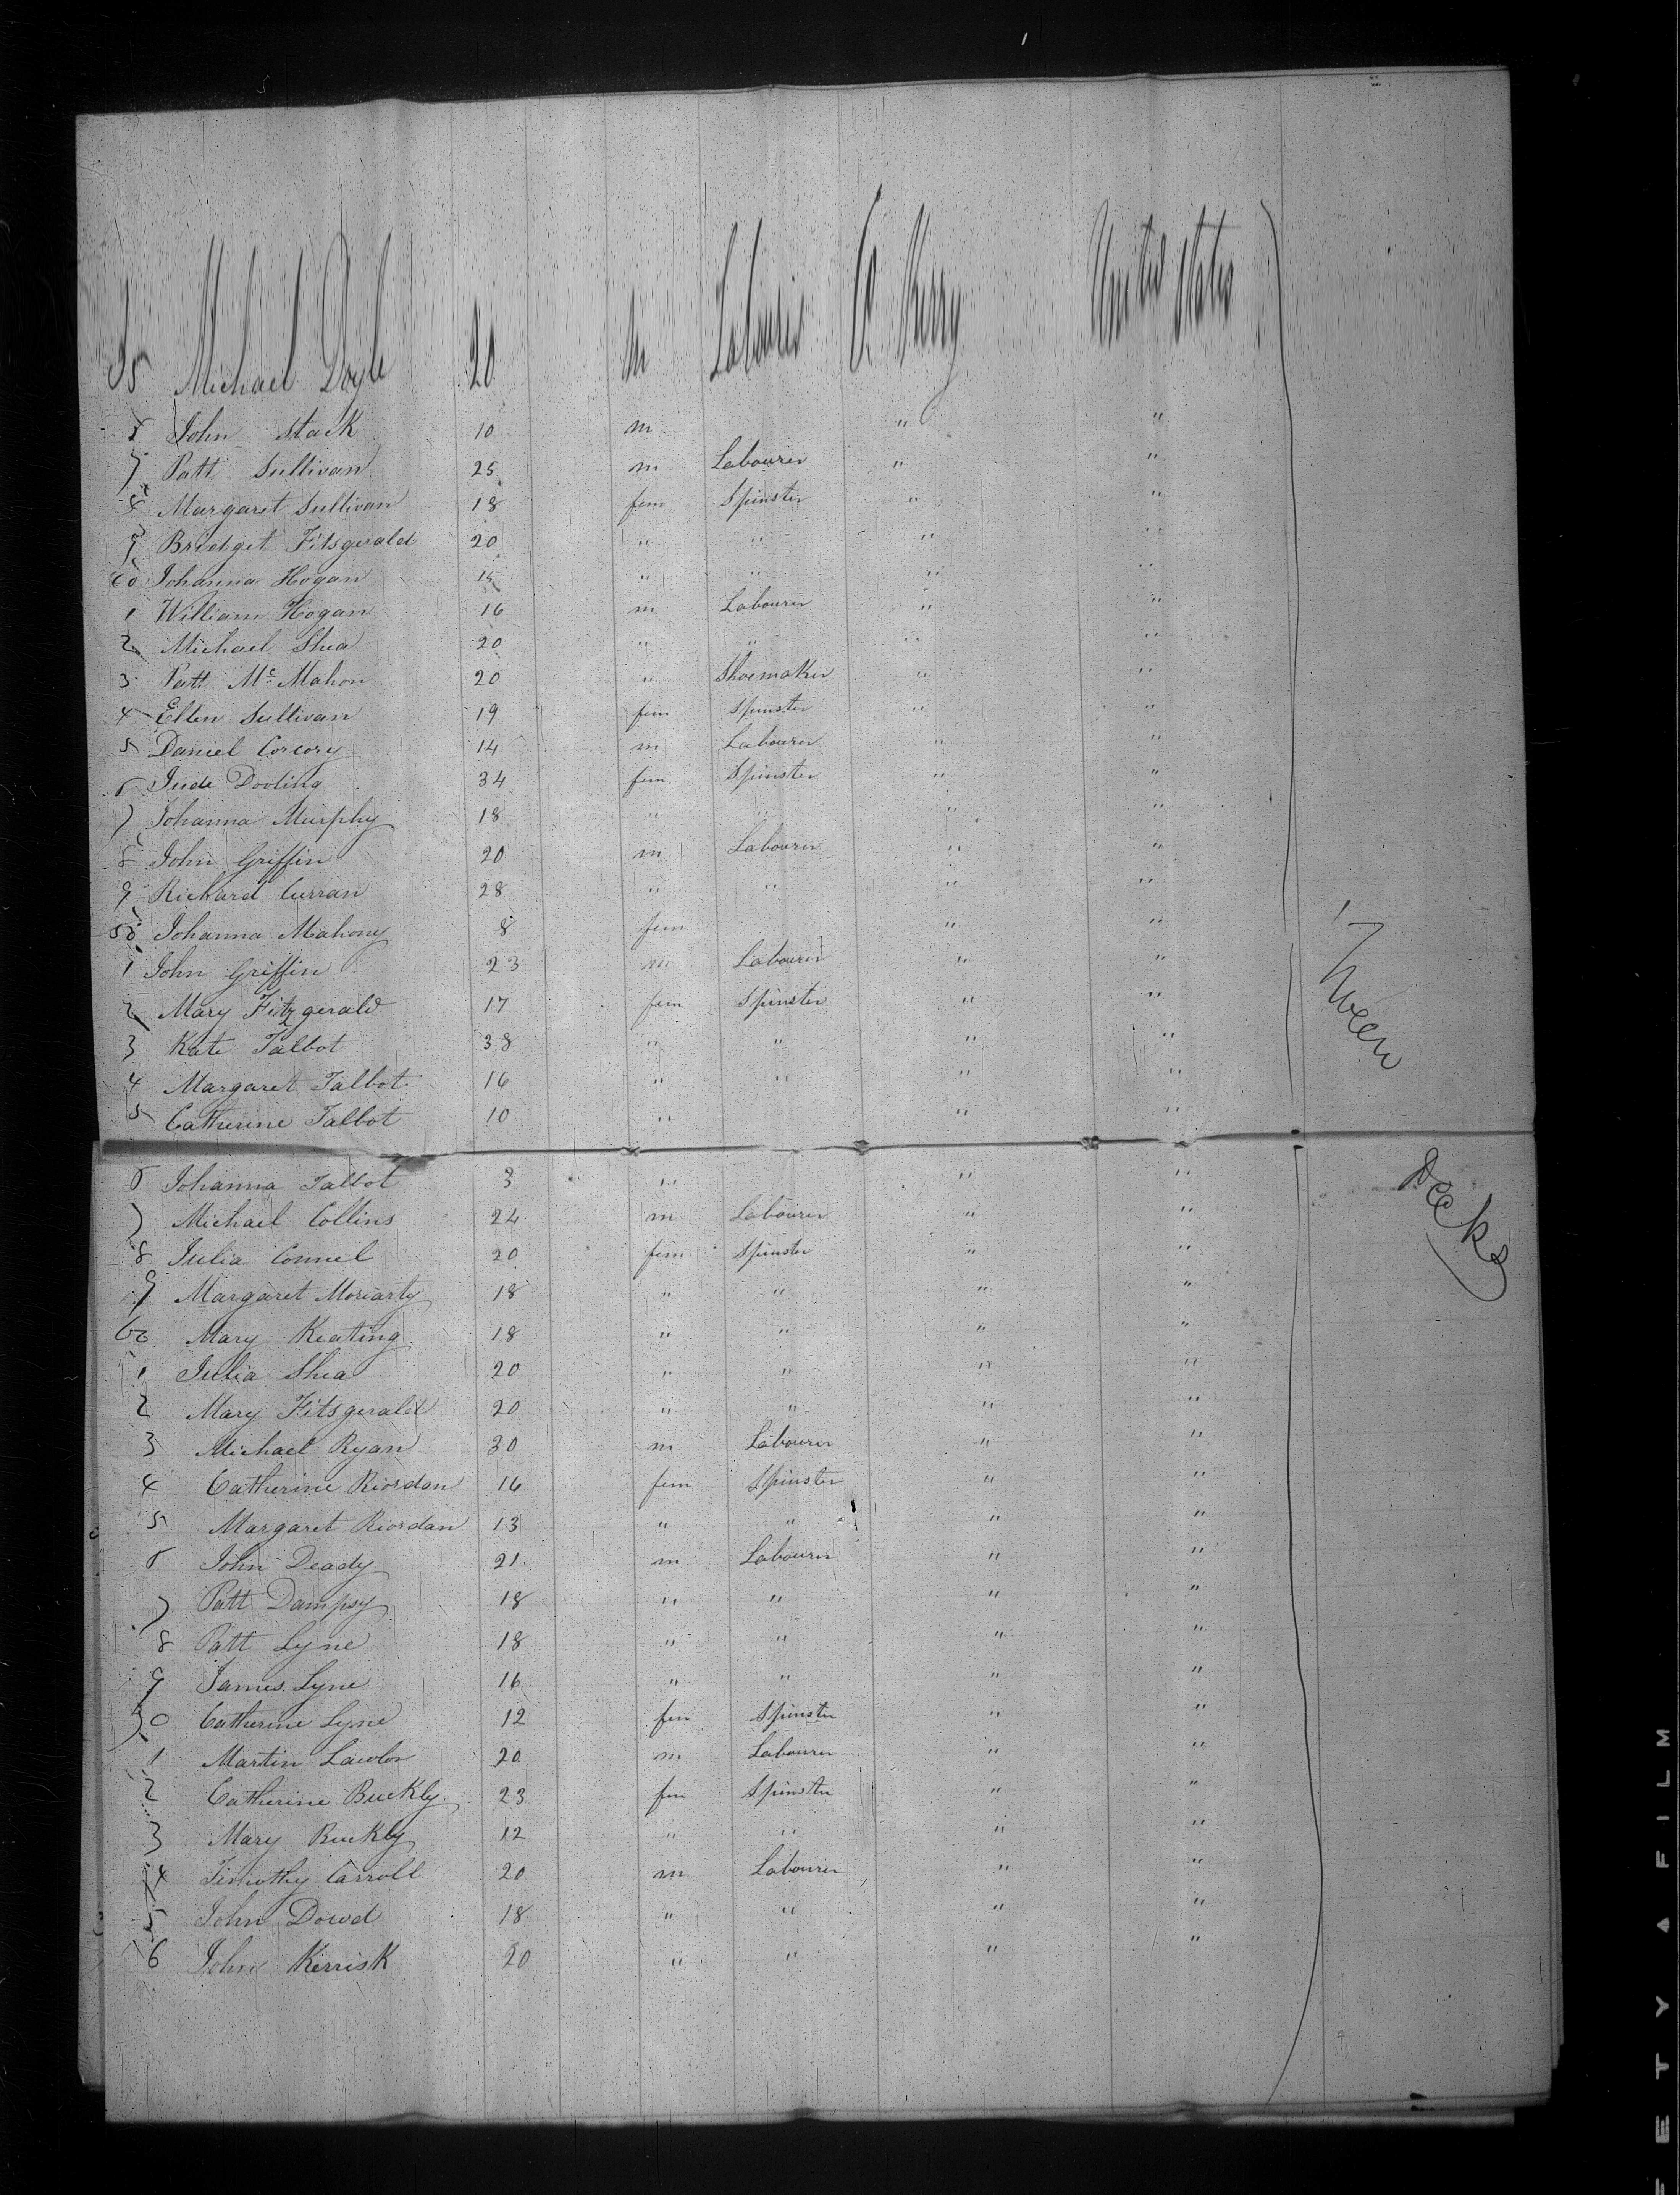 35 Michael Doyle 20 m Labourer Co. Kerry United States
6 John Stack 10 m " "
7 Patt Sullivan 25 m Labourer " "
8 Margaret Sullivan 18 fem Spinster " "
9 Bridget Fitsgerald 20 " " " "
40 Johanna Hogan 15 " " " "
1 William Hogan 16 m Labourer " "
2 Michael Shea 20 " " " "
3 Patt McMahon 20 " Shoemaker " "
4 Ellen Sullivan 19 fem Spinster " "
5 Daniel Corcory 14 m Labourer " "
6 Jude Dooling 34 fem Spinster " "
7 Johanna Murphy 18 " " " "
8 John Griffin 20 m Labourer " "
9 Richard Curran 28 " " " "
50 Johanna Mahony 8 fem " "
1 John Griffin 23 m Labourer " "
2 Mary Fitzgerald 17 fem Spinster " "
3 Kate Talbot 38 " " " "
4 Margaret Talbot 16 " " " "
5 Catherine Talbot 10 " " "
'Tween Decks
6 Johanna Talbot 3 " " "
7 Michael Collins 24 m Labourer " "
8 Julia Connel 20 fem Spinster " "
9 Margaret Moriarty 18 " " " "
60 Mary Keating 18 " " " "
1 Julia Shea 20 " " " "
2 Mary Fitsgerald 20 " " " "
3 Michael Ryan 30 m Labourer " "
4 Catherine Riordan 16 fem Spinster " "
5 Margaret Riordan 13 " " " "
6 John Deady 21 m Labourer " "
7 Patt Dampsy 18 " " " "
8 Patt Lyne 18 " " " "
9 James Lyne 16 " " " "
70 Catherine Lyne 12 fem Spinster " "
1 Martin Lawlor 20 m Labourer " "
2 Catherine Buckly 23 fem Spinster " "
3 Mary Buckly 12 " " " "
4 Timothy Carroll 20 m Labourer " "
5 John Dowd 18 " " " "
6 John Kerrisk 20 " " " "
ETY A FILM